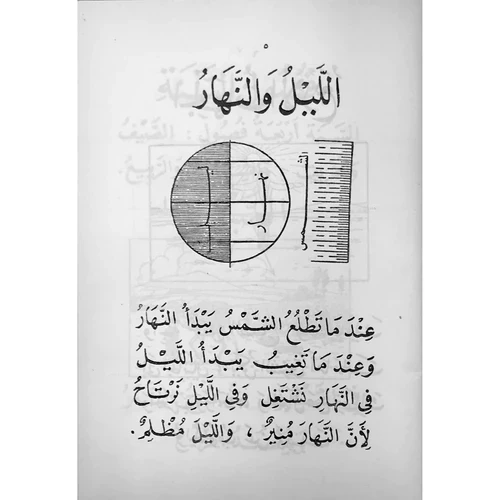 ٥
اللَّيْلُ وَالنَّهَارُ
ليل
نهار
الشمس
عِنْدَ مَا تَطْلُعُ الشَّمْسُ يَبْدَأُ النَّهَارُ
وَعِنْدَ مَا تَغِيبُ يَبْدَأُ اللَّيْلُ
فِي النَّهَارِ نَشْتَغِل وَفِي اللَّيْلِ نَرْتَاحُ
لِأَنَّ النَّهَارَ مُنِيرٌ ، وَاللَّيْلَ مُظْلِمٌ .